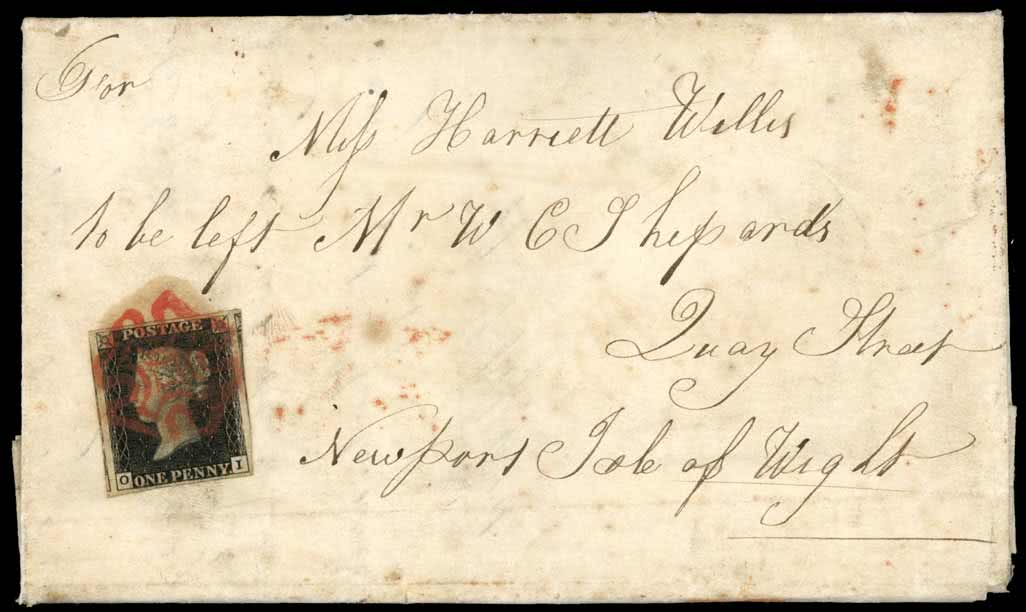 For
Miss Harriett Willis
to be left Mr W C Shepards
Quay Street
Newport Isle of Wight
POSTAGE
O ONE PENNY I